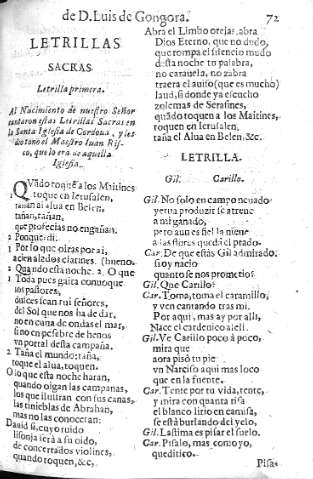 de D. Luis de Gongora. 72
LETRILLAS
SACRAS
Letrilla primera.
Al Nacimiento de nuestro Señor
cantaron estas Letrillas Sacras en
la Santa Iglesia de Cordoua, y les
Maestro Iuan Ris-
co, que lo era de aquella
Iglesia.
QVãdo toquẽ a los Maitines
toque en Ierusalen,
tañan al alua en Belen,
tañan, tañan,
que profecias no engañan.
2 Porque: di.
1 Por lo que oiras por ai,
a cien alados clarines. (bueno.
2 Quando esta noche. 2. O que
1 Toda pues gaita conuoque
los pastores,
dulces sean rui señores,
del Sol que nos ha de dar,
no en cuna de ondas el mar,
si no en pesebre de henos
vn portal desta campaña.
2 Taña el mundo: taña,
toque el alua, toquen.
O lo que esta noche haran,
quando oigan las campanas,
los que ilustran con sus canas,
las tinieblas de Abrahan,
mas no las conoceran:
Dauid si, cuyo ruido
lisonja serà a su oido,
de concertados violines,
quando toquen, &c.
Abra el Limbo orejas, abra
Dios Eterno, que no dudo,
que rompa el silencio mudo
desta noche tu palabra,
no carauela, no zabra
traera el auiso (que es mucho)
laud, si donde ya escucho
de Serafines,
quãdo toquen a los Maitines,
toquen en Ierusalen,
taña el Alua en Belen, &c.
LETRILLA.
Gil. Carillo.
Gil. No solo en campo neuado
yerua produzir se atreue
a mi ganado,
pero aun es fiel la nieue
a las flores que dà el prado.
Car. De que estàs Gil admirado,
si oy naciò
quanto se nos prometio?
Gil. Que Carillo?
Car. Toma, toma el caramillo,
y ven cantando tras mi.
Por aqui, mas ay por alli,
Nace el cardenico aleli.
Gil. Ve Carillo poco à poco,
mira que
aora pisò tu pie
vn Narciso aqui mas loco
que en la fuente.
Car. Tente por tu vida, tente,
y mira con quanta risa
el blanco lirio en camisa,
se està burlando del yelo.
Gil. Lastima es pisar el suelo.
Car. Pisalo, mas como yo,
queditico.
Pisa-